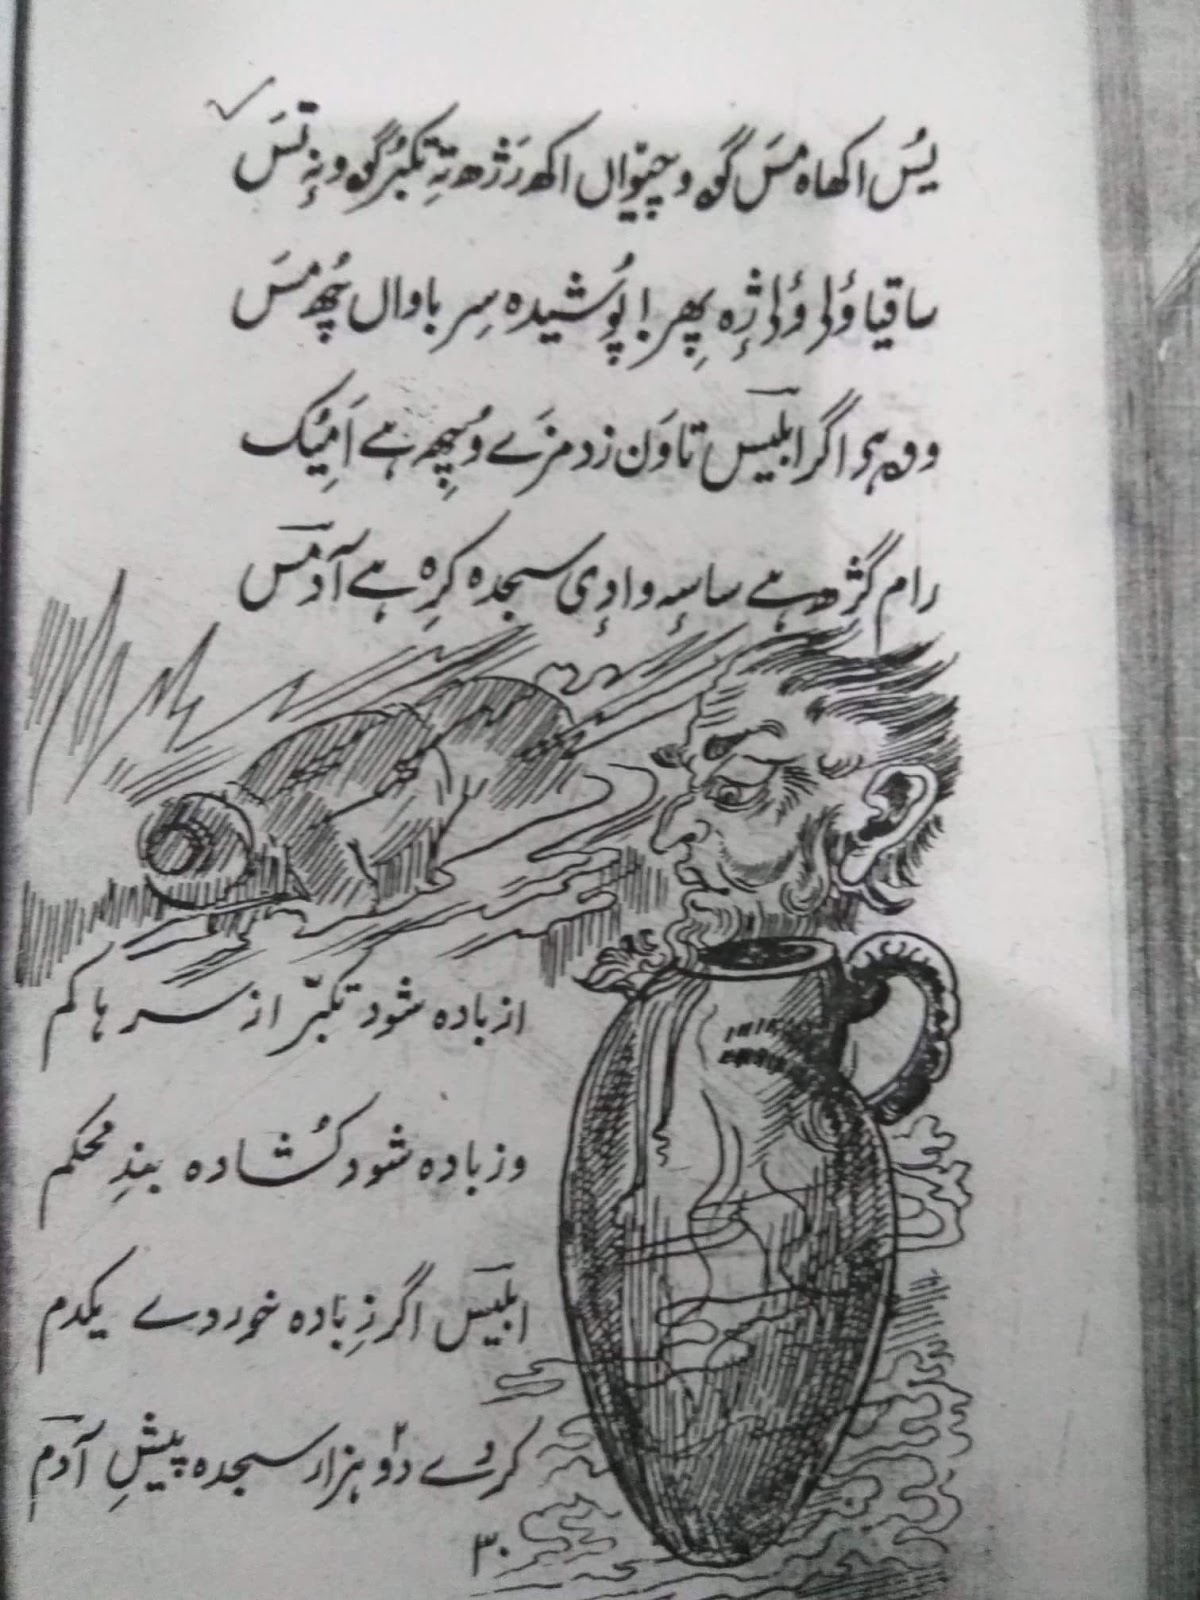 یُس اکھاہ مَس گو و چیٚوان اکھ رَژھ تہٕ تکبرُ گو و نہٕ تَسَ
ساقیا وُلی وُلی ژٕہ پھِر ! پوشیدہ سِر باوان چھُ مَس
ووہ ہو اگر ابلیٖس تاوَن زد مزَے وُچھِ ہے اَمِیُک
رام گژھ ہے ساسہٕ وادٕی سجدہ کرِہ ہے آدمَس
از بادہ شود تکبّر از سر ہا کم
وز بادہ شود کُشادہ بندِ محکم
ابلیٖس اگر زِ بادہ خوردے یکدم
کردُے دوٗ ہزار سجدہ پیشِ آدم
۳۰